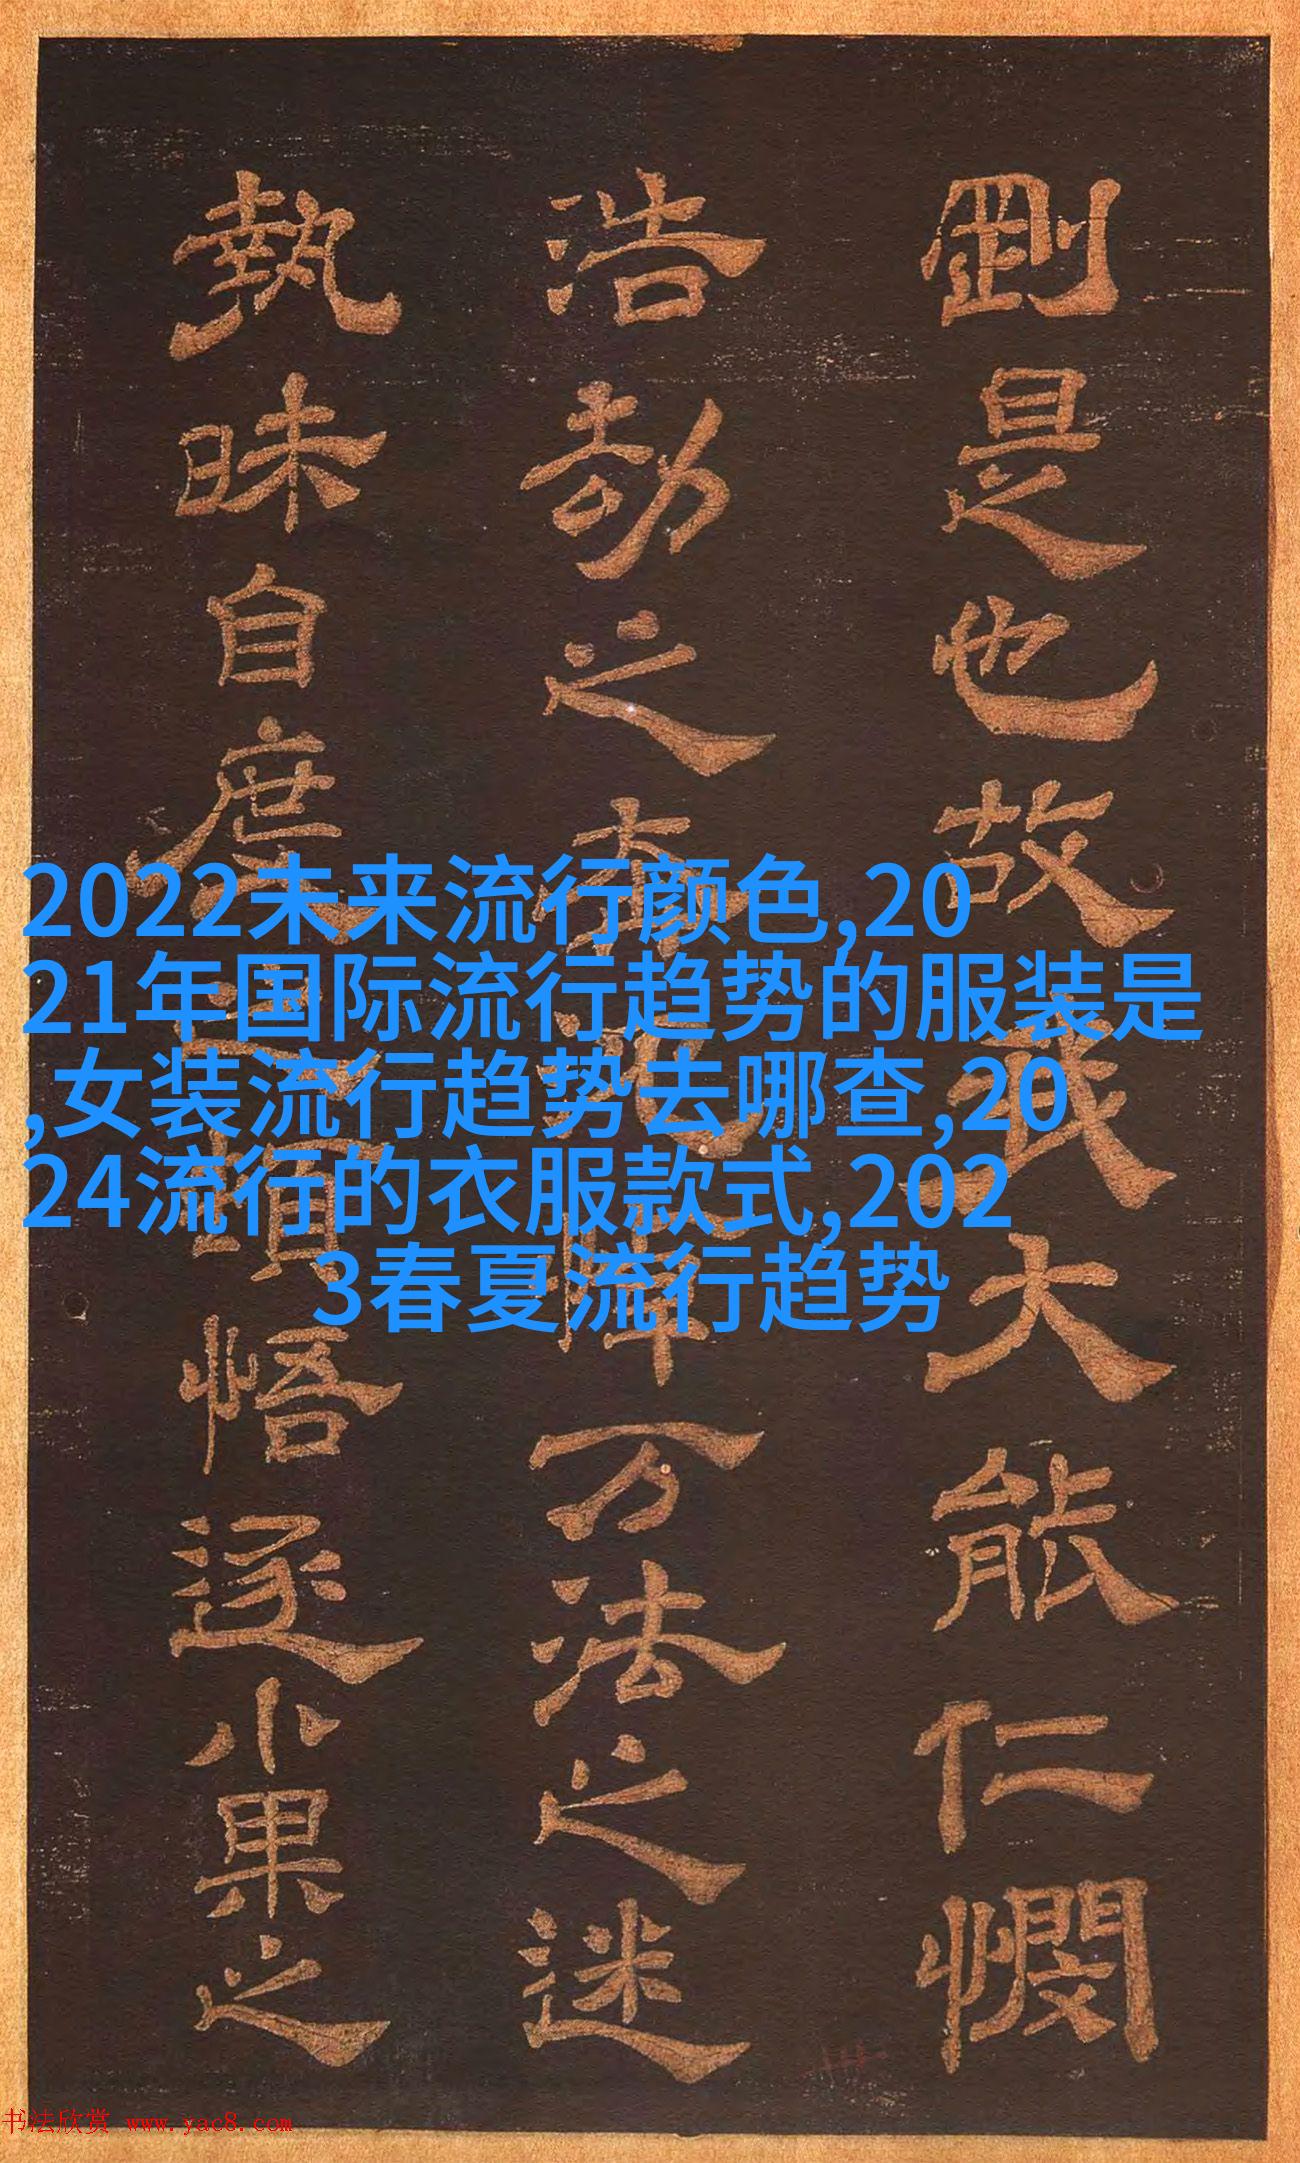 剛是也故我大能仁憫
浩劫之障万法之迷
執昧自度悟逐小果之
2022未来流行颜色,20
21年国际流行趋势的服装是
,女装流行趋势去哪查,20
24流行的衣服款式,202
3春夏流行趋势
书法欣赏 www.yac8.com